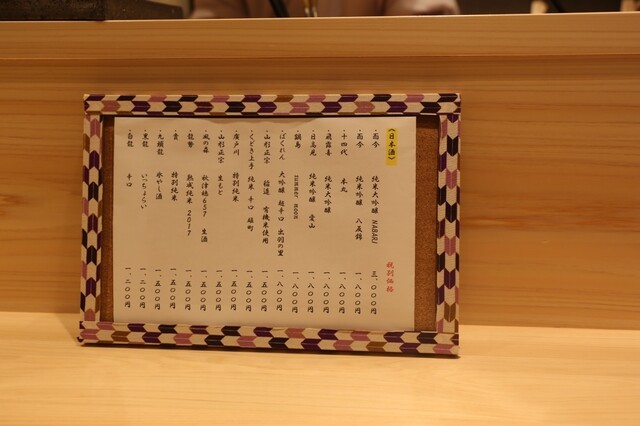 《日本酒》
税別価格
・而今 純米大吟醸 NABARI 三、〇〇〇円
・而今 純米吟醸 八反錦 一、八〇〇円
・十四代 本丸 一、八〇〇円
・飛露喜 純米大吟醸 一、八〇〇円
・日高見 純米吟醸 愛山 一、八〇〇円
・鍋島 一、八〇〇円
・ばくれん 大吟醸 超辛口 出羽の里 一、八〇〇円
・山形正宗 稲造 有機米使用 一、八〇〇円
・くどき上手 純米 辛口 雄町 一、五〇〇円
・廣戸川 特別純米 一、五〇〇円
・山形正宗 生もと 一、五〇〇円
・風の森 秋津穂657 生酒 一、五〇〇円
・龍勢 熟成純米2017 一、五〇〇円
・貴 特別純米 一、五〇〇円
・九頭龍 氷やし酒 一、五〇〇円
・黒龍 いっちょらい 一、二〇〇円
・白龍 辛口 一、二〇〇円